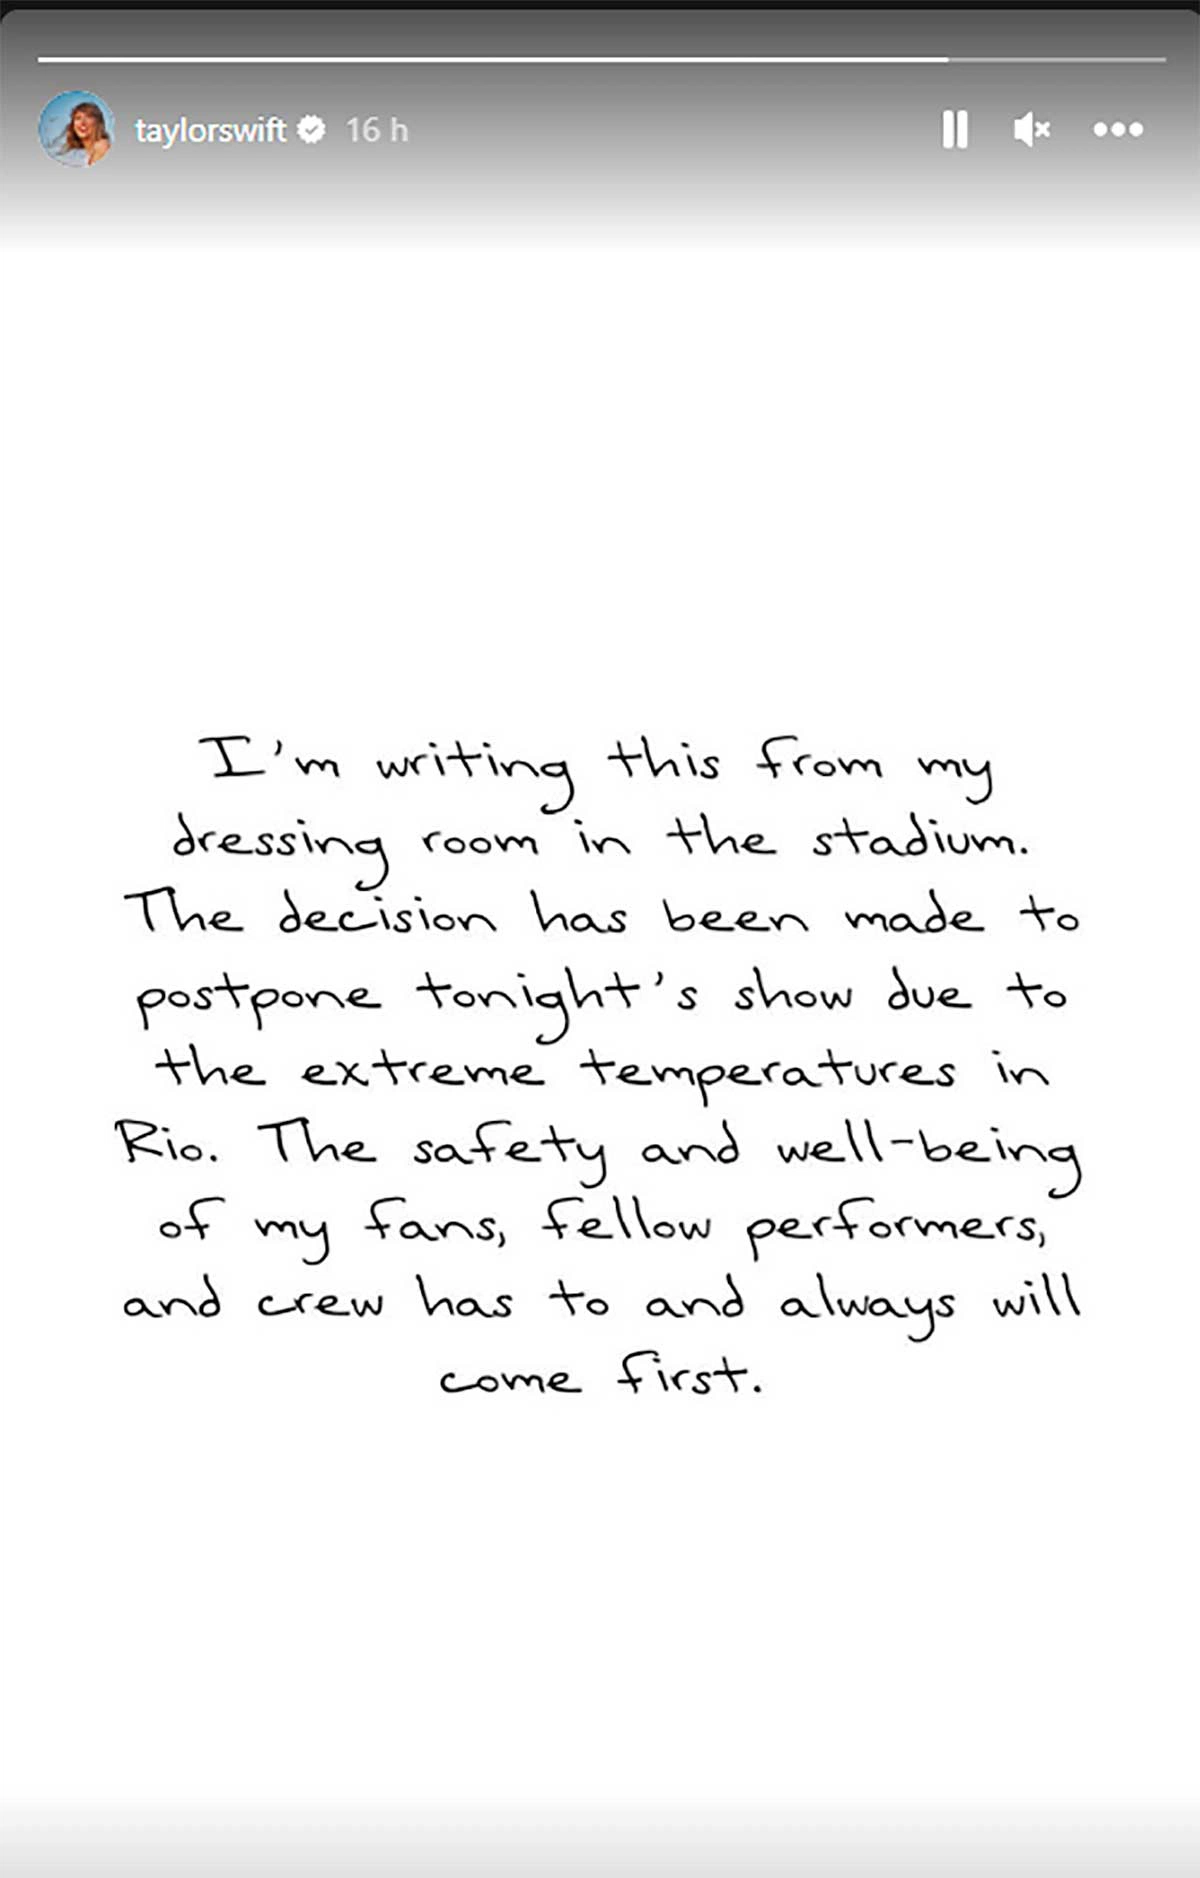 taylorswift 16 h
I'm writing this from my
dressing room in the stadium.
The decision has been made to
postpone tonight's show due to
the extreme temperatures in
Rio. The safety and well-being
of my fans, fellow performers,
and crew has to and always will
come first.